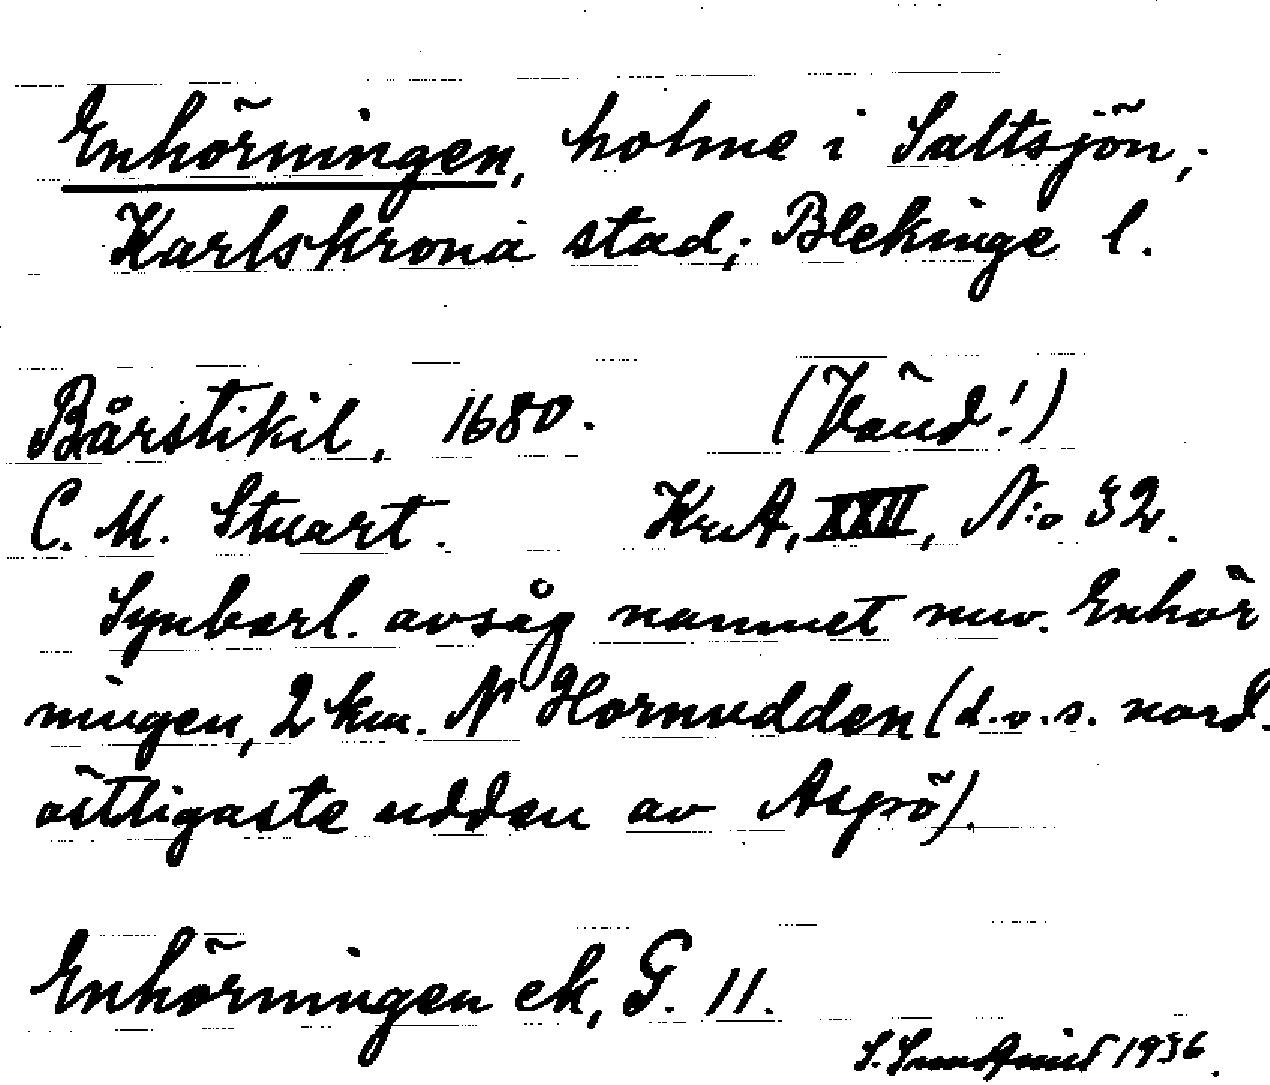 Enhörningen, holme i Saltsjön,
Karlskrona stad; Blekinge l.
Bårstikil, 1680. (Vänd!)
C. M. Stuart. KrA, XXII, N:o 32.
Synbarl. avsåg namnet nuv. Enhör
ningen, 2 km. N Hornudden (d.v.s. nord.
östligaste udden av Aspö).
Enhörningen ek, G. 11.
1936.